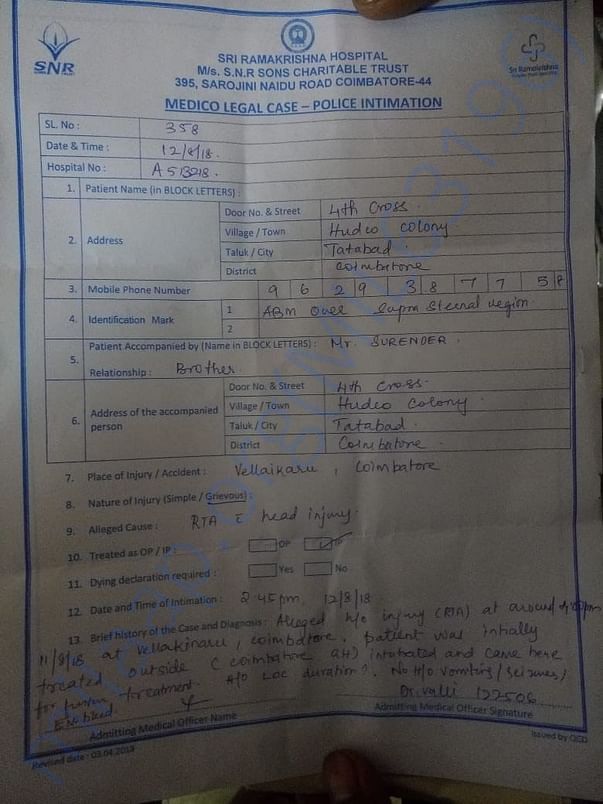 SNR
Sri Ramakrishna
SRI RAMAKRISHNA HOSPITAL
M/s. S.N.R SONS CHARITABLE TRUST
395, SAROJINI NAIDU ROAD COIMBATORE-44
MEDICO LEGAL CASE – POLICE INTIMATION
SL. No : 358
Date & Time : 12/8/18.
Hospital No :
1. Patient Name (in BLOCK LETTERS) :
2. Address
Door No. & Street 4th Cross.
Village / Town Hudco Colony
Taluk / City Tatabad.
District Coimbatore
3. Mobile Phone Number 9 6 2 9 3 8 7 7 5 8
4. Identification Mark
1 ABM Over Supra Sternal region.
2
5. Patient Accompanied by (Name in BLOCK LETTERS) : Mr. SURENDER.
Relationship : Brother.
6. Address of the accompanied person
Door No. & Street 4th Cross.
Village / Town Hudco Colony
Taluk / City Tatabad.
District Coimbatore.
7. Place of Injury / Accident : Coimbatore
8. Nature of Injury (Simple / Grievous) :
9. Alleged Cause : RTA c head injury.
10. Treated as OP / IP : OP IP
11. Dying declaration required : Yes No
12. Date and Time of Intimation : 2.45pm, 12/8/18.
13. Brief history of the Case and Diagnosis: Alleged h/o injury (RTA) at around
11/8/18 at Vellakinaru, Coimbatore. patient was initially
treated outside (Coimbatore GH) intubated and came here
for further treatment. H/O LOC duration?. No H/O vomiting / seizures /
ENT bleed. Dr. Valli 122506
Admitting Medical Officer Name
Admitting Medical Officer Signature
Revised date : 03.04.2013
Issued by QCD